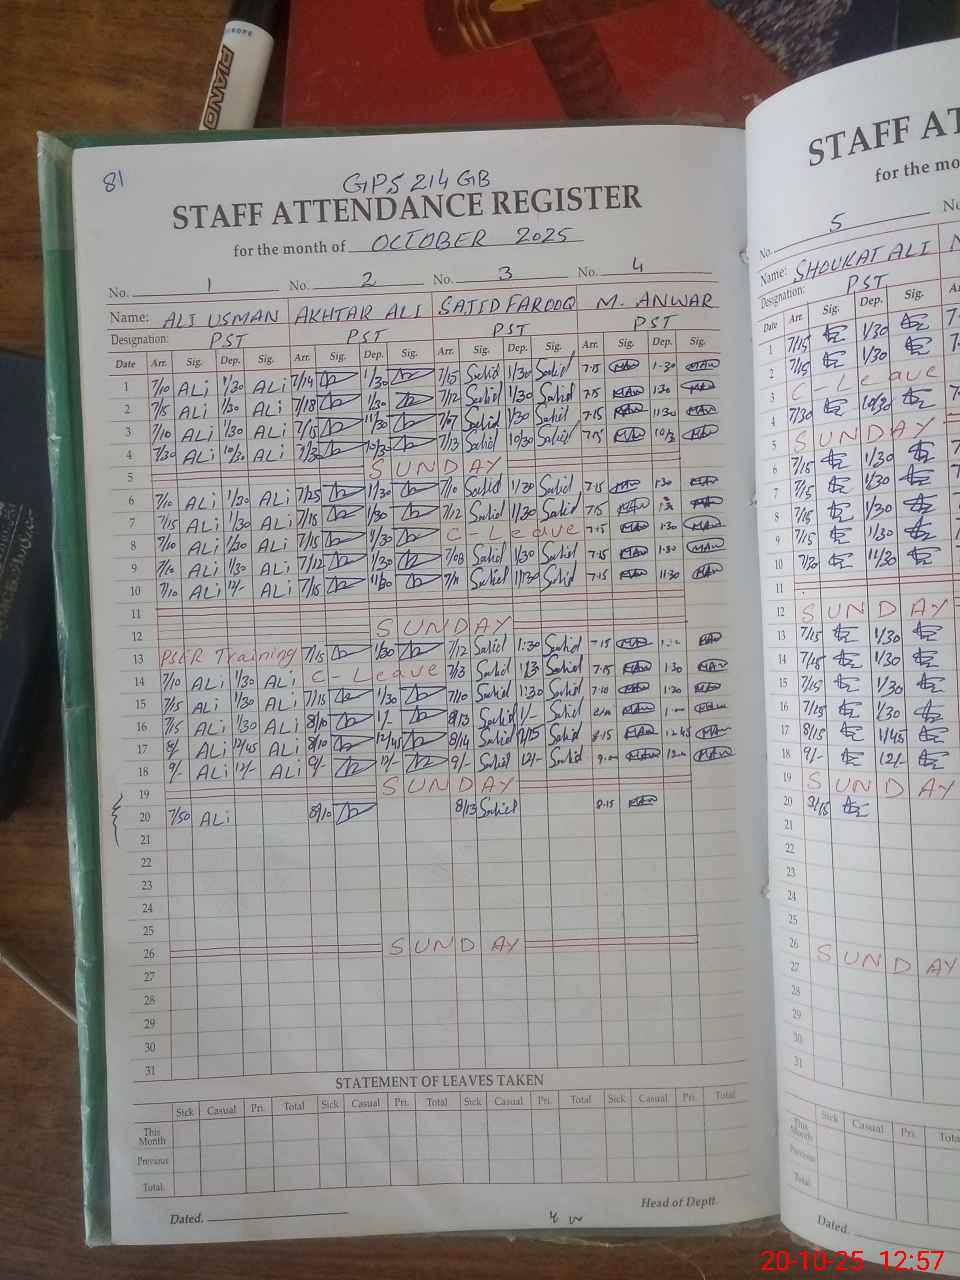 EUROPE
PIANO
81
GPS 214 GB
STAFF ATTENDANCE REGISTER
for the month of OCTOBER 2025
No. 1 No. 2 No. 3 No. 4
Name: ALI USMAN AKHTAR ALI SAJID FAROOQ M. ANWAR
Designation: PST PST PST PST
Date Arr. Sig. Dep. Sig. Arr. Sig. Dep. Sig. Arr. Sig. Dep. Sig. Arr. Sig. Dep. Sig.
1 7/10 ALi 1/30 ALi 7/14 1/30 7/15 Sajid 1/30 Sajid 7-15 MAW 1-30 MAW
2 7/15 ALi 1/30 ALi 7/18 1/30 7/12 Sajid 1/30 Sajid 7-15 MAW 1-30 MAW
3 7/10 ALi 1/30 ALi 7/15 11/30 7/07 Sajid 1/30 Sajid 7-15 MAW 11-30 MAW
4 7/30 ALi 10/30 ALi 10/30 7/13 Sajid 10/30 Sajid 7-15 MAW MAW
5 SUNDAY
6 7/10 ALi 1/30 ALi 7/25 1/30 7/10 Sajid 1/30 Sajid 7-15 MAW 1-30 MAW
7 7/15 ALi 1/30 ALi 7/15 1/30 7/12 Sajid 1/30 Sajid 7-15 MAW MAW
8 7/10 ALi 1/30 ALi 7/15 1/30 C-Leave 7-15 MAW 1-30 MAW
9 7/10 ALi 1/30 ALi 7/12 1/30 7/08 Sajid 1/30 Sajid 7-15 MAW 1-30 MAW
10 7/10 ALi 12/- ALi 7/15 11/30 7/11 Sajid 11/30 Sajid 7-15 MAW 11-30 MAW
11
12 SUNDAY
13 PSER Training 7/15 1/30 7/12 Sajid 1:30 Sajid 7-15 MAW MAW
14 7/10 ALi 1/30 ALi C-Leave 7/3 Sajid Sajid 7-15 MAW 1-30 MAW
15 7/5 ALi 1/30 ALi 7/15 1/30 7/10 Sajid 1:30 Sajid 7-10 MAW 1-30 MAW
16 7/5 ALi 1/30 ALi 8/10 1/- 8/13 Sajid 1/- Sajid MAW MAW
17 8/ ALi 12/45 ALi 8/10 12/45 8/14 Sajid Sajid 8-15 MAW 12-45 MAW
18 9/- ALi 12/- ALi 9/- 12/- 9/- Sajid 12/- Sajid 9-00 MAW 12-00 MAW
19 SUNDAY
20 7/50 ALi 8/10 8/13 Sajid 8-15 MAW
21
22
23
24
25
26 SUNDAY
27
28
29
30
31
STATEMENT OF LEAVES TAKEN
Sick Casual Pri. Total Sick Casual Pri. Total Sick Casual Pri. Total Sick Casual Pri. Total
This Month
Previous
Total
Dated. Head of Deptt.
STAFF AT
for the mo
No. 5 No
Name: SHOUKAT ALI
Designation: PST
Date Arr. Sig. Dep. Sig.
1 7/15 1/30
2 7/15 1/30
3 C-Leave
4 7/30 10/30
5 SUNDAY
6 7/15 1/30
7 7/15 1/30
8 7/15 1/30
9 7/15 1/30
10 7/20 11/30
11
12 SUNDAY
13 7/15 1/30
14 7/15 1/30
15 7/15 1/30
16 7/15 1/30
17 8/15 1/45
18 9/- 12/-
19 SUNDAY
20
21
22
23
24
25
26 SUNDAY
27
28
29
30
31
Sick Casual Pri. Tota
This Month
Previous
Total
Dated
20-10-25 12:57